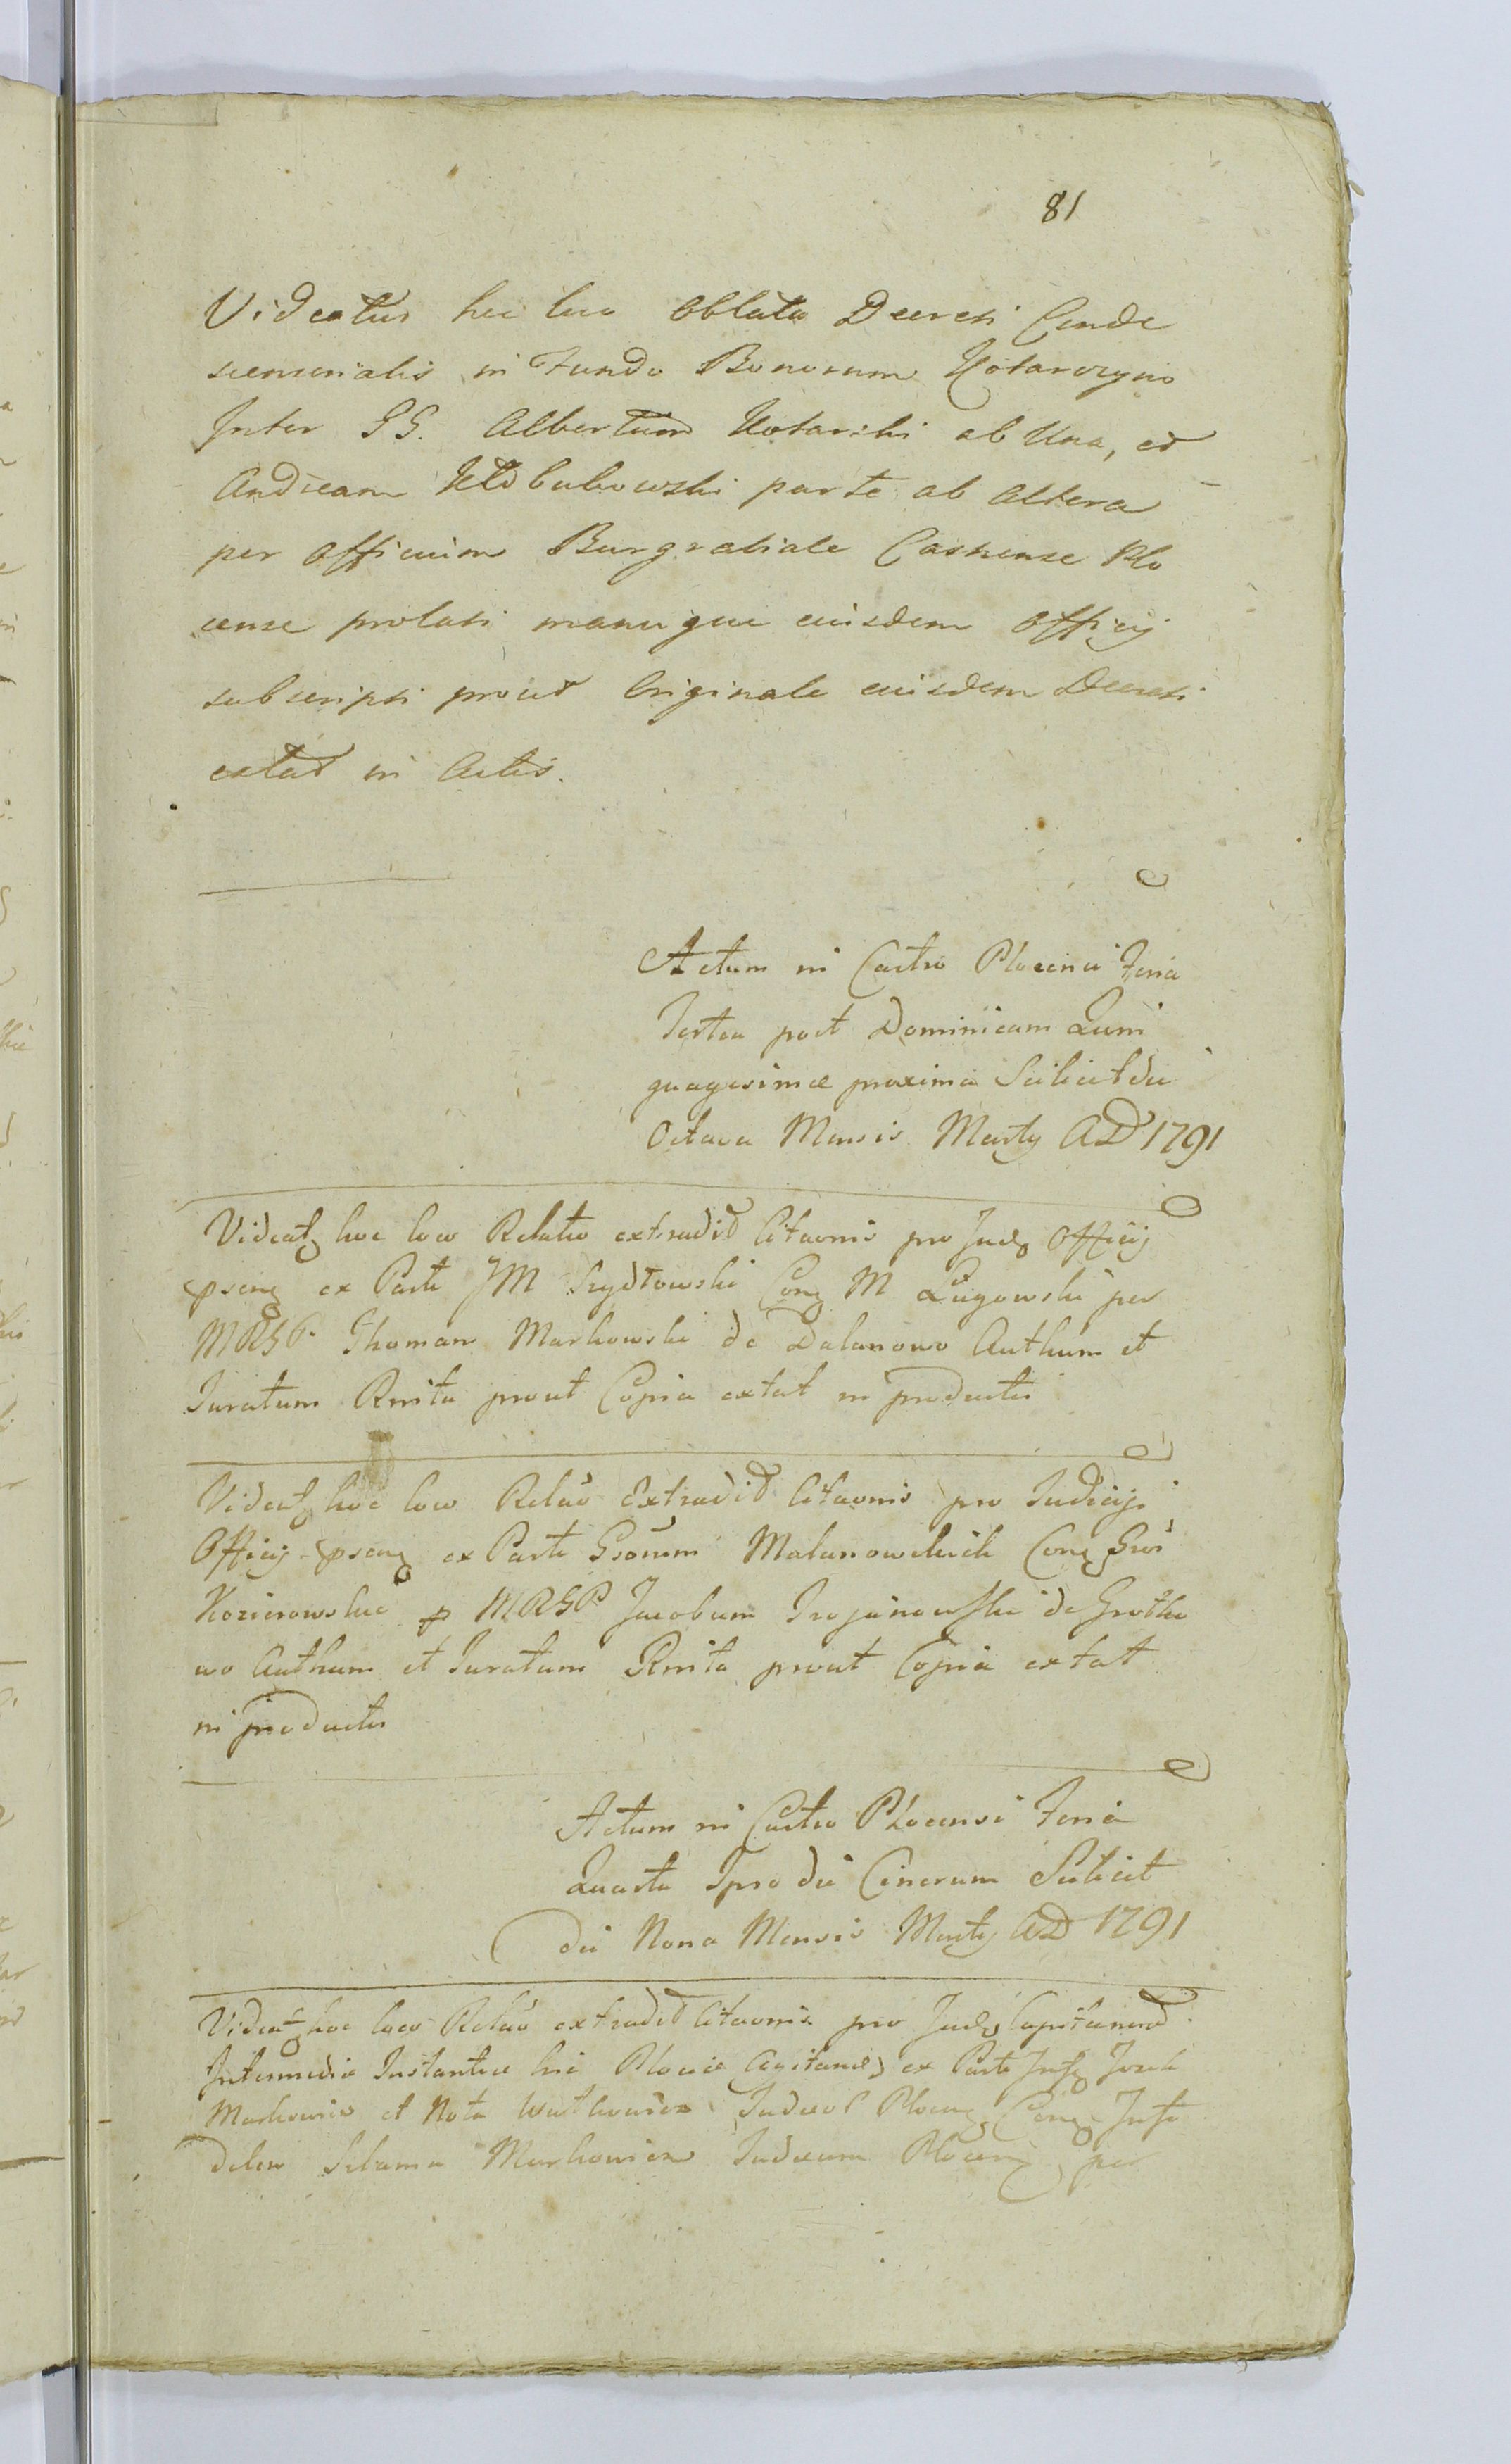 81
Videatur hic loco Oblata Decreti Conde
scensorialis in Fundo Bonorum Kotarczyno
Inter GG. Albertum Kotarski ab Una, et
Andream Kłobukowski parte ab altera
per officium Burgrabiale Castrense Plo
cense prolati manuque eiusdem Officij
subscripti prout Originale eiusdem Decreti
extat in Actis.
Actum in Castro Plocensi Feria
Tertia post Dominicam Quin
quagesimæ proxima Scilicet die
Octava Mensis Martij AD 1791
Videatz hoc loco Relatio extradit Citaonis pro Judz Officij
psenz ex Parte JM Szydłowski Conz M Ługowski per
MRGP Thomam Markowski de Dalanowo Authum et
Juratum Rnita prout Copia extat in productis
Videatz hoc loco Relao Extradit Citaonis pro Judicijs
Officij psenz ex Parte Gsorum Malanowskich Conz Gsos
Kozierowskie p MRGP Jacobum Trojanowski de Grotko
wo Authum et Juratum Rnita prout Copia extat
in productis
Actum in Castro Plocensi Feria
Quarta Ipso die Cinerum Scilicet
die Nona Mensis Martij AD 1791
Videatz hoc loco Relao extradit Citaonis pro Judz Capitaneod
Intermedia Instantiæ hic Plociæ ex Parte Infz Josek
Markowicz et Nota Judæos Plocenz Conz Infi
delem Selama Markowicz Judæum Plocenz per